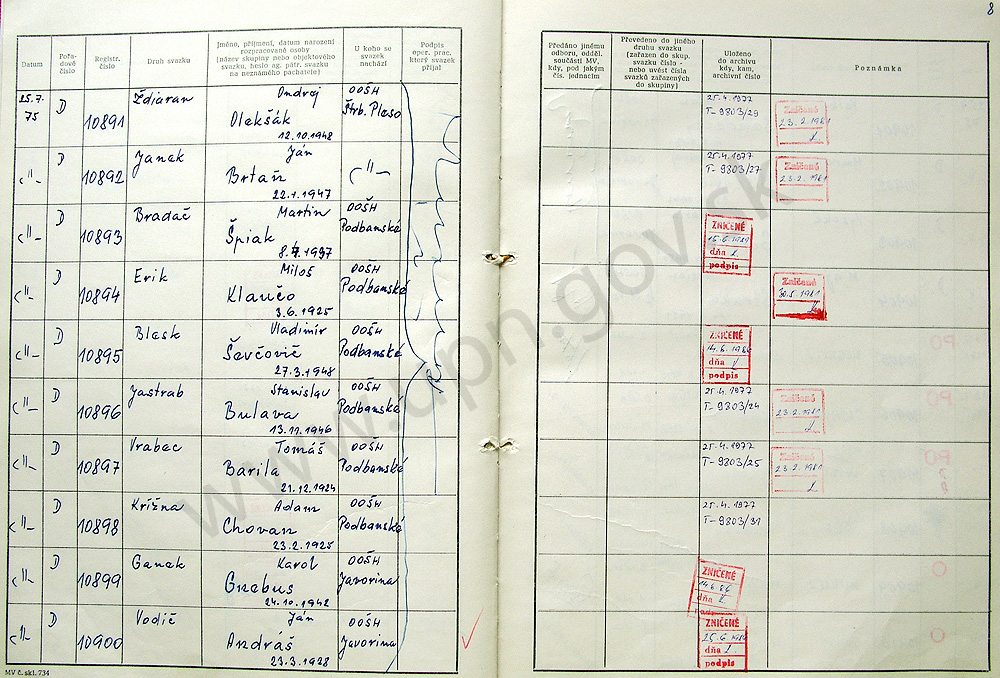 8
Datum
Pořa-
dové
číslo
Registr.
číslo
Druh svazku
Jméno, příjmení, datum narození
rozpracované osoby
(název skupiny nebo objektového
svazku, heslo ag. pátr. svazku
na neznámého pachatele)
U koho se
svazek
nachází
Podpis
oper. prac.
který svazek
přijal
Předáno jinému
odboru, odděl.
součásti MV,
kdy, pod jakým
čís. jednacím
Převedeno do jiného
druhu svazku
(zařazen do skup.
svazku číslo -
nebo uvést čísla
svazků zařazených
do skupiny)
Uloženo
do archivu
kdy, kam,
archivní číslo
Poznámka
25.7.
75
D
10891
Ždiaran
Ondrej
Olekšák
12.10.1948
OOŠH
Štrb. Pleso
25.4.1977
T-9803/29
Zničené
23.2.1981
-"-
D
10892
Janek
Ján
Brtaň
22.1.1947
-"-
25.4.1977
T-9803/27
Zničené
23.2.1981
-"-
D
10893
Bradáč
Martin
Špiak
OOŠH
Podbanské
ZNIČENÉ
dňa
podpis
-"-
D
10894
Erik
Miloš
Klaučo
3.6.1925
OOŠH
Podbanské
Zničené
-"-
D
10895
Blesk
Vladimír
Ševčovič
27.3.1948
OOŠH
Podbanské
ZNIČENÉ
dňa
podpis
-"-
D
10896
Jastrab
Stanislav
Bulava
13.11.1946
OOŠH
Podbanské
25.4.1977
T-9803/24
Zničené
23.2.1981
-"-
D
10897
Vrabec
Tomáš
Barila
21.12.1924
OOŠH
Podbanské
25.4.1977
T-9803/25
Zničené
23.2.1981
-"-
D
10898
Krížna
Adam
Chovan
23.2.1925
OOŠH
Podbanské
25.4.1977
T-9803/31
-"-
D
10899
Ganek
Karol
Gnebus
24.10.1942
OOŠH
Javorina
ZNIČENÉ
dňa
-"-
D
10900
Vodič
Ján
Andráš
23.3.1928
OOŠH
Javorina
ZNIČENÉ
dňa
podpis
MV č. skl. 734
www.upn.gov.sk